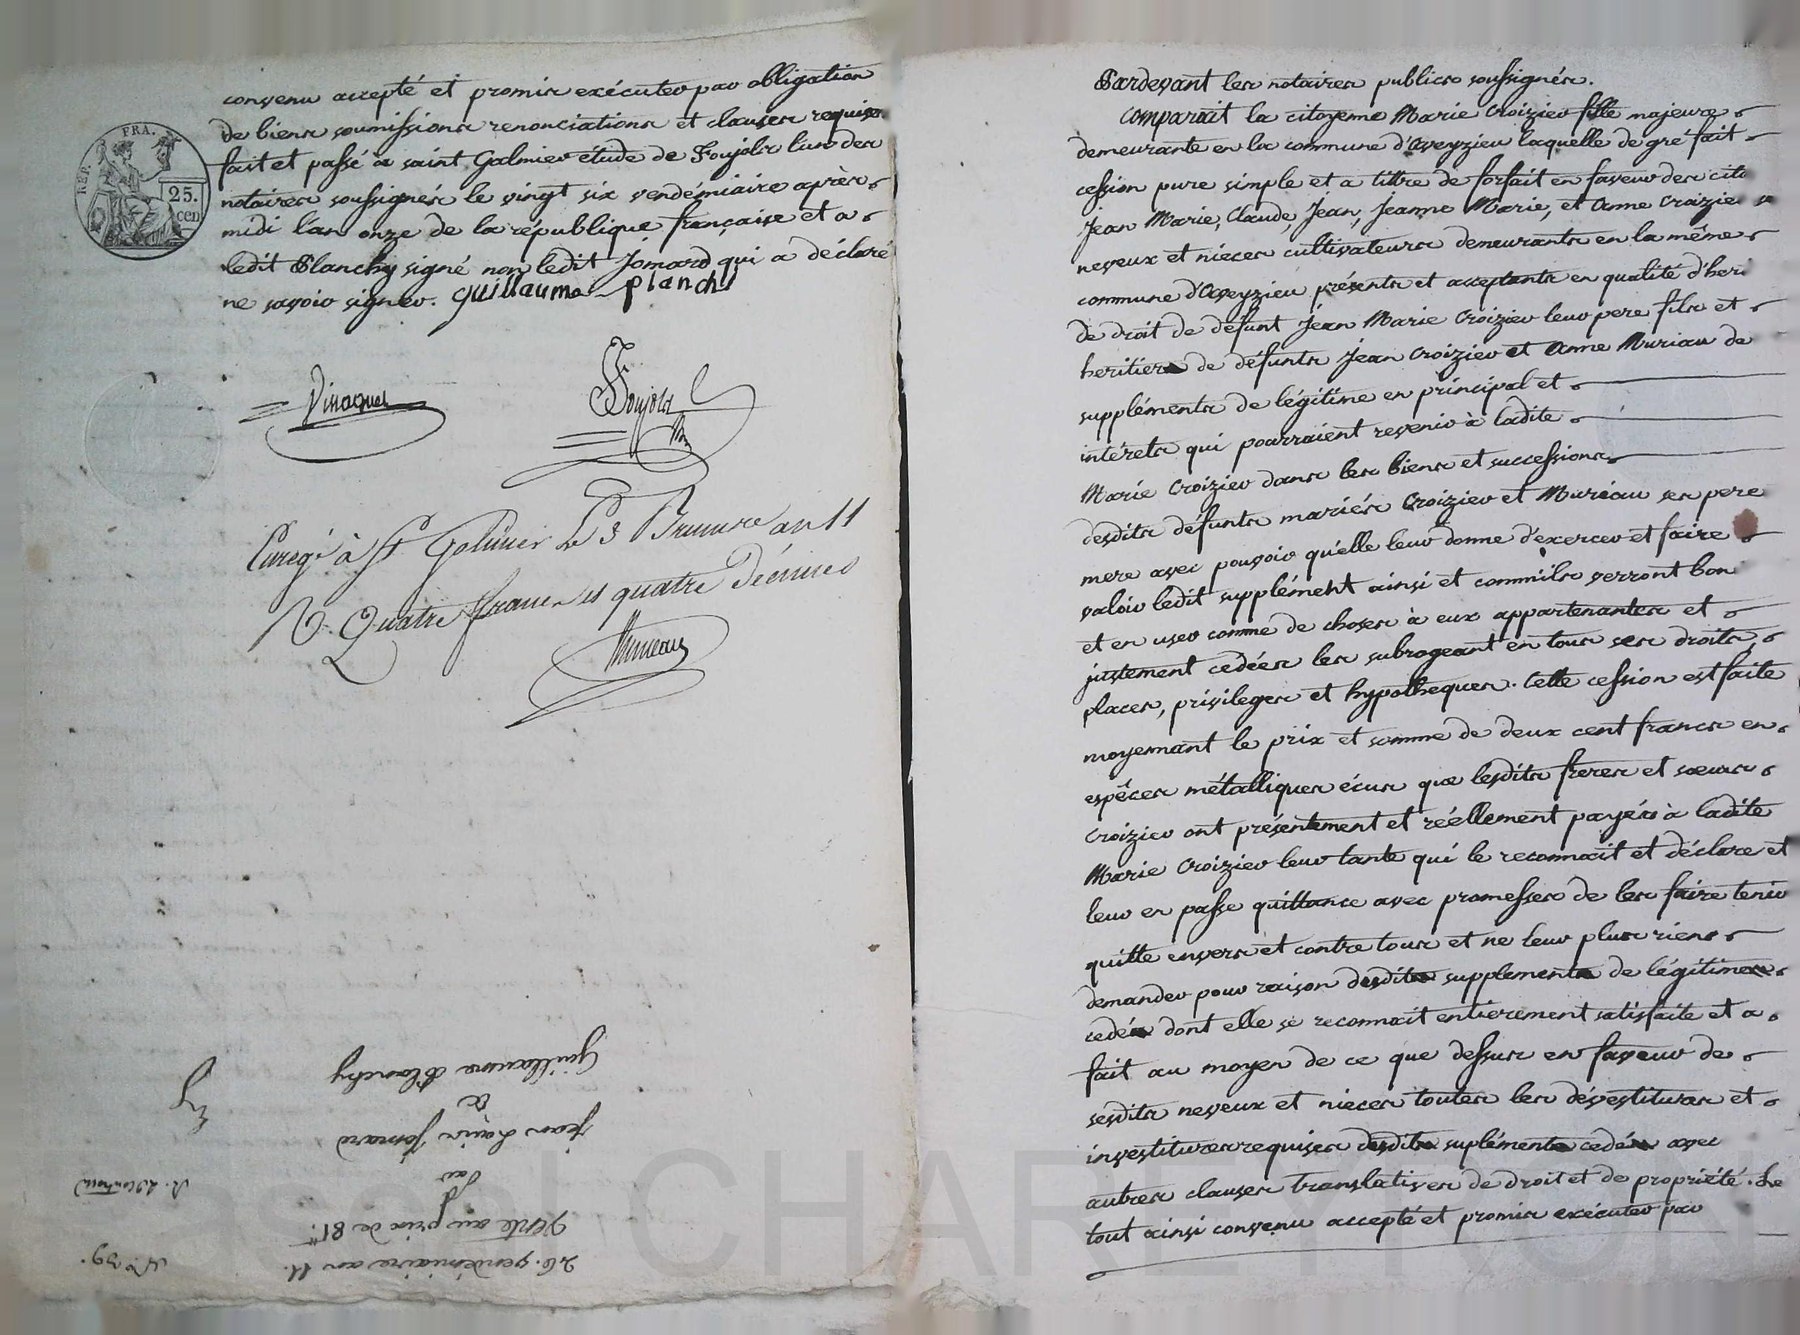 convenu accepté et promis exécuter par obligation
de biens soumissions renonciations et clauses requises
fait et passé à saint Galmier étude de Foujols l'un des
notaires soussignés le vingt six vendémiaire après
midi l'an onze de la république française et a
ledit Planchy signé non ledit Jomard qui a déclaré
ne savoir signer. guillaume planch
RÉP. FRA.
25.
cen
Foujols
Enregé à St Galmier Le 3 Brumre an 11
R. Quatre francs et quatre décimes
N° 39.
26. vendémiaire an 11.
Vente au prix de 81
Par
Jean Louis Jomard
à
Guillaume Planchy
Pardevant les notaires publics soussignés.
Comparait la citoyenne Marie Croizier fille majeure
demeurante en la commune d'Aveyzieu laquelle de gré fait
cession pure simple et a tittre de forfait en faveur des cito
Jean Marie, Claude, Jean, Jeanne Marie, et Anne Croizier
neveux et nieces cultivateurs demeurants en la même
commune d'Aveyzieu présents et acceptants en qualité d'heri
de droit de défunt Jean Marie Croizier leur pere fils et
heritier de défunts Jean Croizier et Anne Muriau de
suppléments de légitime en principal et
intérets qui pourraient revenir à ladite
Marie Croizier dans les biens et successions
desdits défunts mariés Croizier et Muréau ses pere
mere avec pouvoir qu'elle leur donne d'exercer et faire
valoir ledit supplément ainsi et comm'ils verront bon
et en user comme de choses à eux appartenantes et
justement cedées les subrogeant en tous ses droits,
places, privileges et hypotheques. Cette cession est faite
moyennant le prix et somme de deux cent francs en
espêces métalliques écus que lesdits freres et sœurs
Croizier ont présentement et réellement payés à ladite
Marie Croizier leur tante qui le reconnait et déclare et
leur en passe quittance avec promesses de les faire tenir
quitte envers et contre tous et ne leur plus riens
demander pour raison desdits supplements de légitimes
cedés dont elle se reconnait entierement satisfaite et a
fait au moyen de ce que dessus en faveur de
sesdits neveux et nieces toutes les dévestitures et
investitures requises desdits supléments cedés avec
autres clauses translatives de droit et de propriété. Le
tout ainsi convenu accepté et promis exécuter par
CHAREYRON